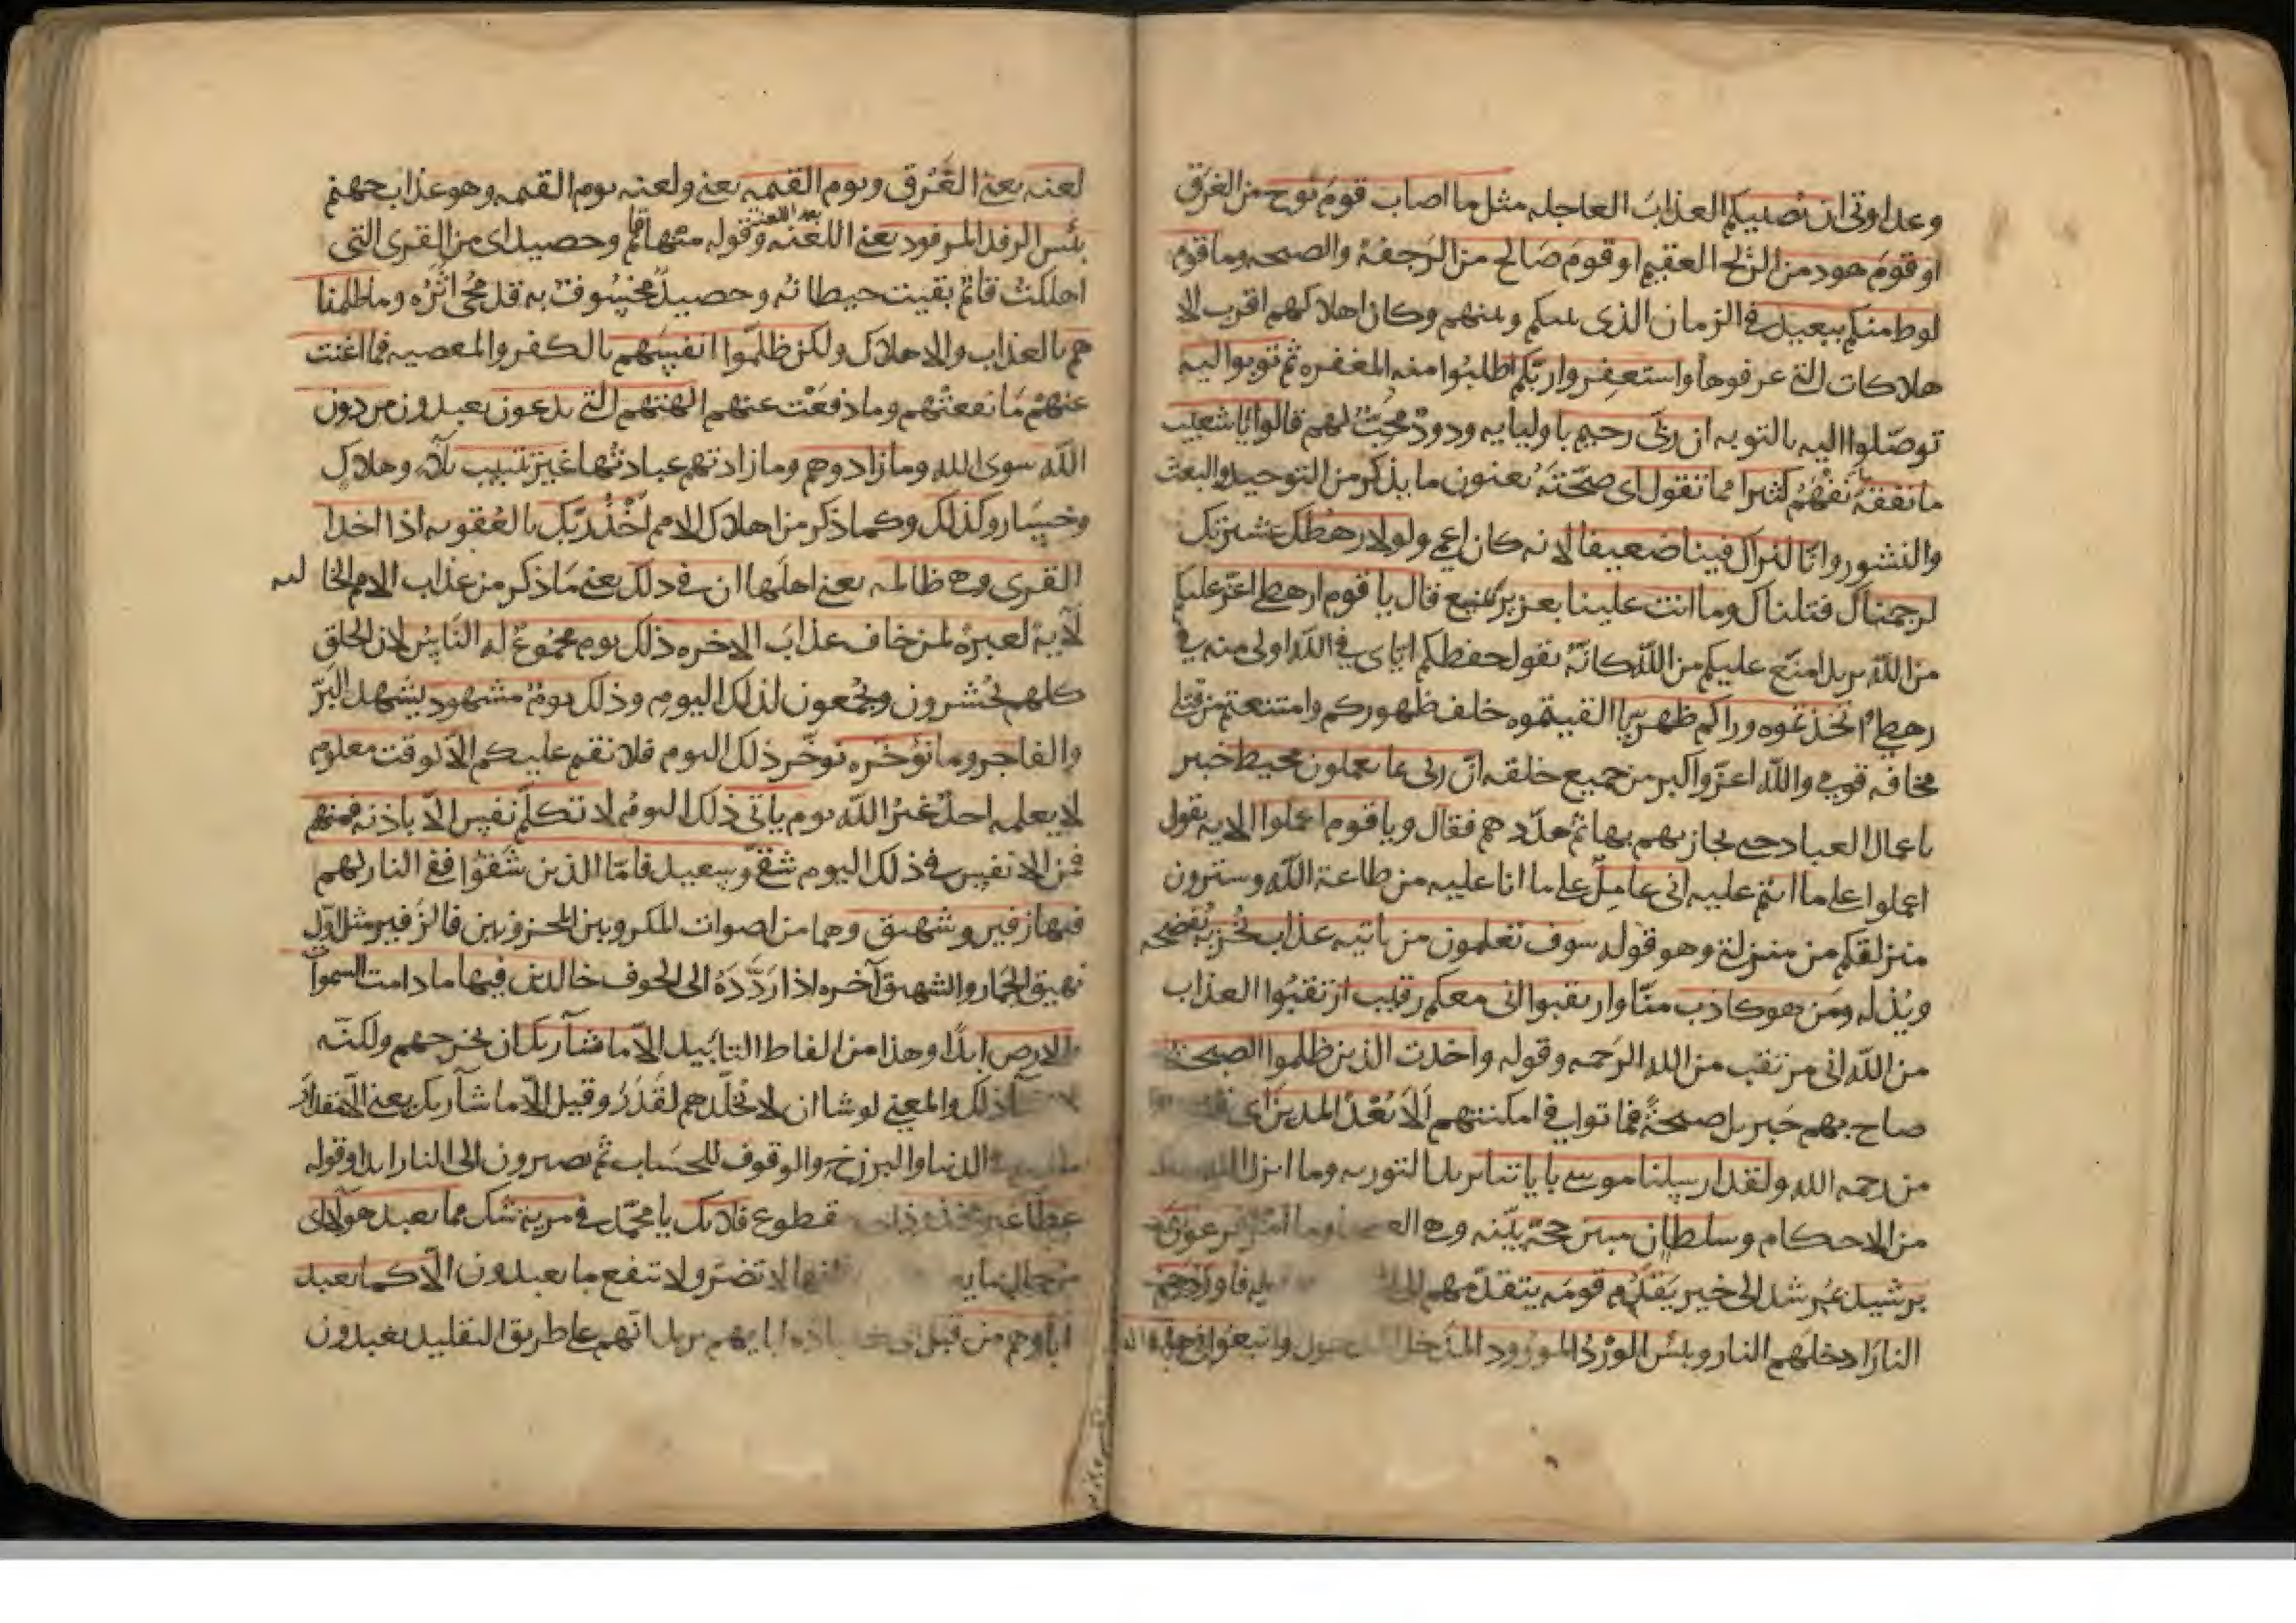 وعداوتى ان يصيبكم العذاب العاجله مثل ما اصاب قوم نوح من الغرق
او قوم هود من الريح العقيم او قوم صالح من الرجفة والصيحه وما قوم
لوط منكم ببعيد في الزمان الذى بينكم وبينهم وكان اهلاكهم اقرب الا
هلاكات التي عرفوها واستغفروا ربكم اطلبوا منه المغفره ثم توبوا اليه
توصلوا اليه بالتوبه ان ربي رحيم باوليايه ودود محب لهم قالوا يا شعيب
ما نفقه نفهم كثيرا مما تقول اى صحته يعنون ما يذكر من التوحيد والبعث
والنشور وانا لنراك فينا ضعيفا لانه كان اعمى ولولا رهطك عشيرتك
لرجمناك قتلناك وما انت علينا بعزيز بمنيع قال يا قوم ارهطي اعز عليكم
من الله يريد امنع عليكم من الله كانه يقول حفظكم اياى في الله اولى منه في
رهطي واتخذتموه وراكم ظهريا القيتموه خلف ظهوركم وامتنعتم من قتلي
مخافه قومي والله اعز واكبر من جميع خلقه ان ربى بما يعملون محيط خبير
باعمال العباد حتى يجازيهم بها ثم هددهم فقال ويا قوم اعملوا الايه يقول
اعملوا على ما انتم عليه انى عامل على ما انا عليه من طاعة الله وسترون
منزلتكم من منزلتي وهو قوله سوف تعلمون من ياتيه عذاب يخزيه يفضحه
ويذله ومن هو كاذب منا وارتقبوا انى معكم رقيب ارتقبوا العذاب
من الله انى مرتقب من الله الرحمه وقوله واخذت الذين ظلموا الصيحة
صاح بهم جبريل صيحة فماتوا في امكنتهم الا بعدا لمدين اى
من رحمه الله ولقد ارسلنا موسى باياتنا يريد التوريه وما انزل الله
من الاحكام وسلطان مبين حجة بينه وهي وما امر فرعون
برشيد غير شد الى خير يقدم قومه يتقدمهم فاوردهم
النار ادخلهم النار وبئس الورد المورود المدخل المدخول واتبعوا في هذه
لعنه يعنى الغرق ويوم القيمه يعني ولعنه يوم القيمه وهو عذاب جهنم
بئس الرفد المرفود يعني اللعنه بعد اللعنة وقوله منها قائم وحصيد اى من القرى التى
اهلكت قائم بقيت حيطانه وحصيد مخسوف به قد محى اثره وما ظلمنا
هم بالعذاب والاهلاك ولكن ظلموا انفسهم بالكفر والمعصيه فما اغنت
عنهم ما نفعتهم وما دفعت عنهم الهتهم التي يدعون يعبدون من دون
الله سوى الله وما زادوهم وما زادتهم عبادتها غير تتبيب بلاء وهلاك
وخسار وكذلك وكما ذكر من اهلاك الامم اخذ ربك بالعقوبه اذا اخذ
القرى وهي ظالمه يعنى اهلها ان في ذلك يعني ما ذكر من عذاب الامم الخاليه
لاية لعبرة لمن خاف عذاب الاخره ذلك يوم مجموع له الناس لان الخلق
كلهم يحشرون ويجمعون لذلك اليوم وذلك يوم مشهود يشهد البر
والفاجر وما نؤخره نوخر ذلك اليوم فلا نقم عليكم الا لوقت معلوم
لا يعلمه احد غير الله يوم ياتى ذلك اليوم لا تكلم نفس الا باذنه فمنهم
فمن الانفس في ذلك اليوم شقي وسعيد فاما الذين شقوا ففي النار لهم
فيها زفير وشهيق وهما من اصوات المكروبين المحزونين فالزفير مثل اول
نهيق الحمار والشهيق آخره اذا ردده الى الجوف خالدين فيها ما دامت السموات
والارض ابدا وهذا من الفاظ التابيد الا ما شآ ربك ان يخرجهم ولكنه
ذلك والمعنى لو شا ان لا يخلدهم لقدر وقيل الا ما شآ ربك يعني الا مقدار
الدنيا والبرزخ والوقوف للحساب ثم يصيرون الى النار ابدا وقوله
عطا غير مجذوذ مقطوع فلا تك يا محمد في مرية شك مما يعبد هولاى
لا تضر ولا تنفع ما يعبدون الا كما يعبد
اباوهم من قبل يريد انهم على طريق التقليد يعبدون